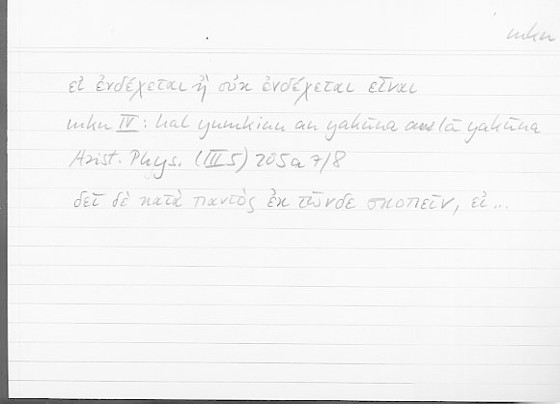 mkn
εἰ ἐνδέχεται ἢ οὐκ ἐνδέχεται εἶναι
mkn IV: hal yumkinu an yakūna au lā yakūna
Arist. Phys. (III 5) 205a 7/8
δεῖ δὲ κατὰ παντὸς ἐκ τῶνδε σκοπεῖν, εἰ ...